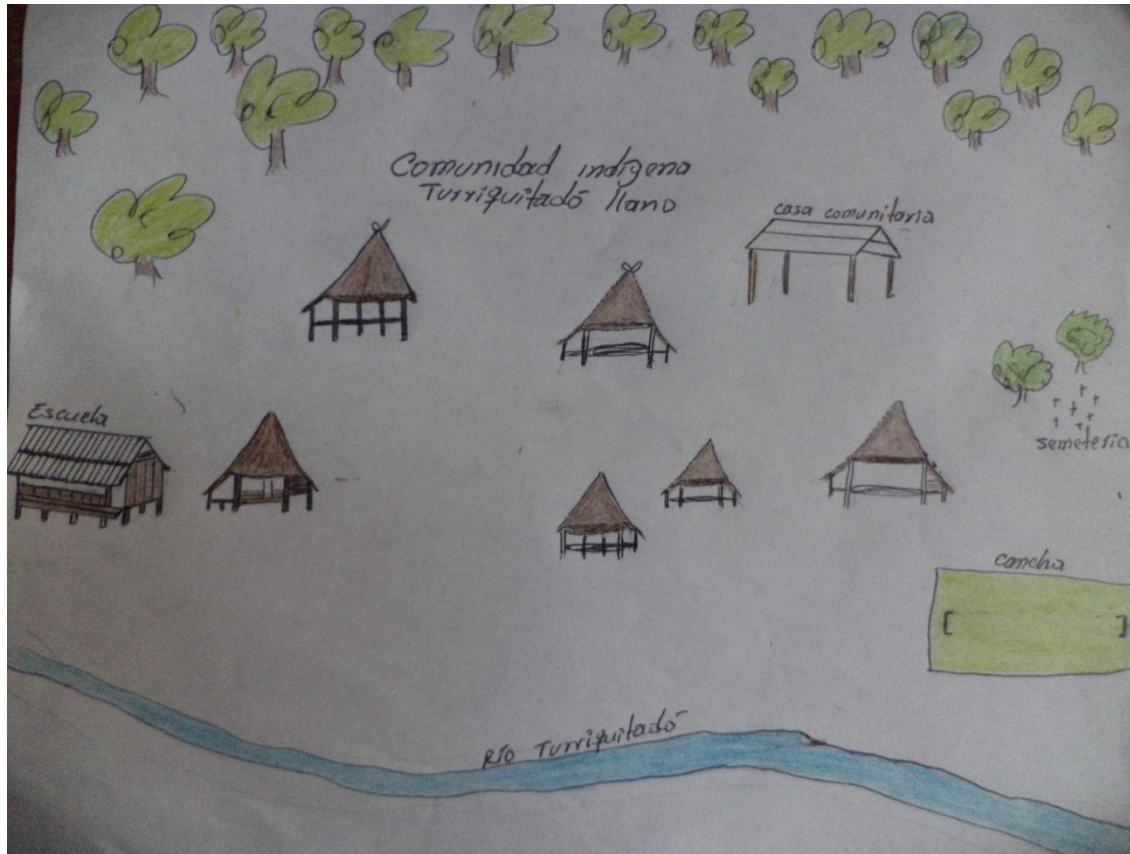 Comunidad indígena
Turriquitadó llano
casa comunitaria
Escuela
semeterio
cancha
Río Turriquitadó